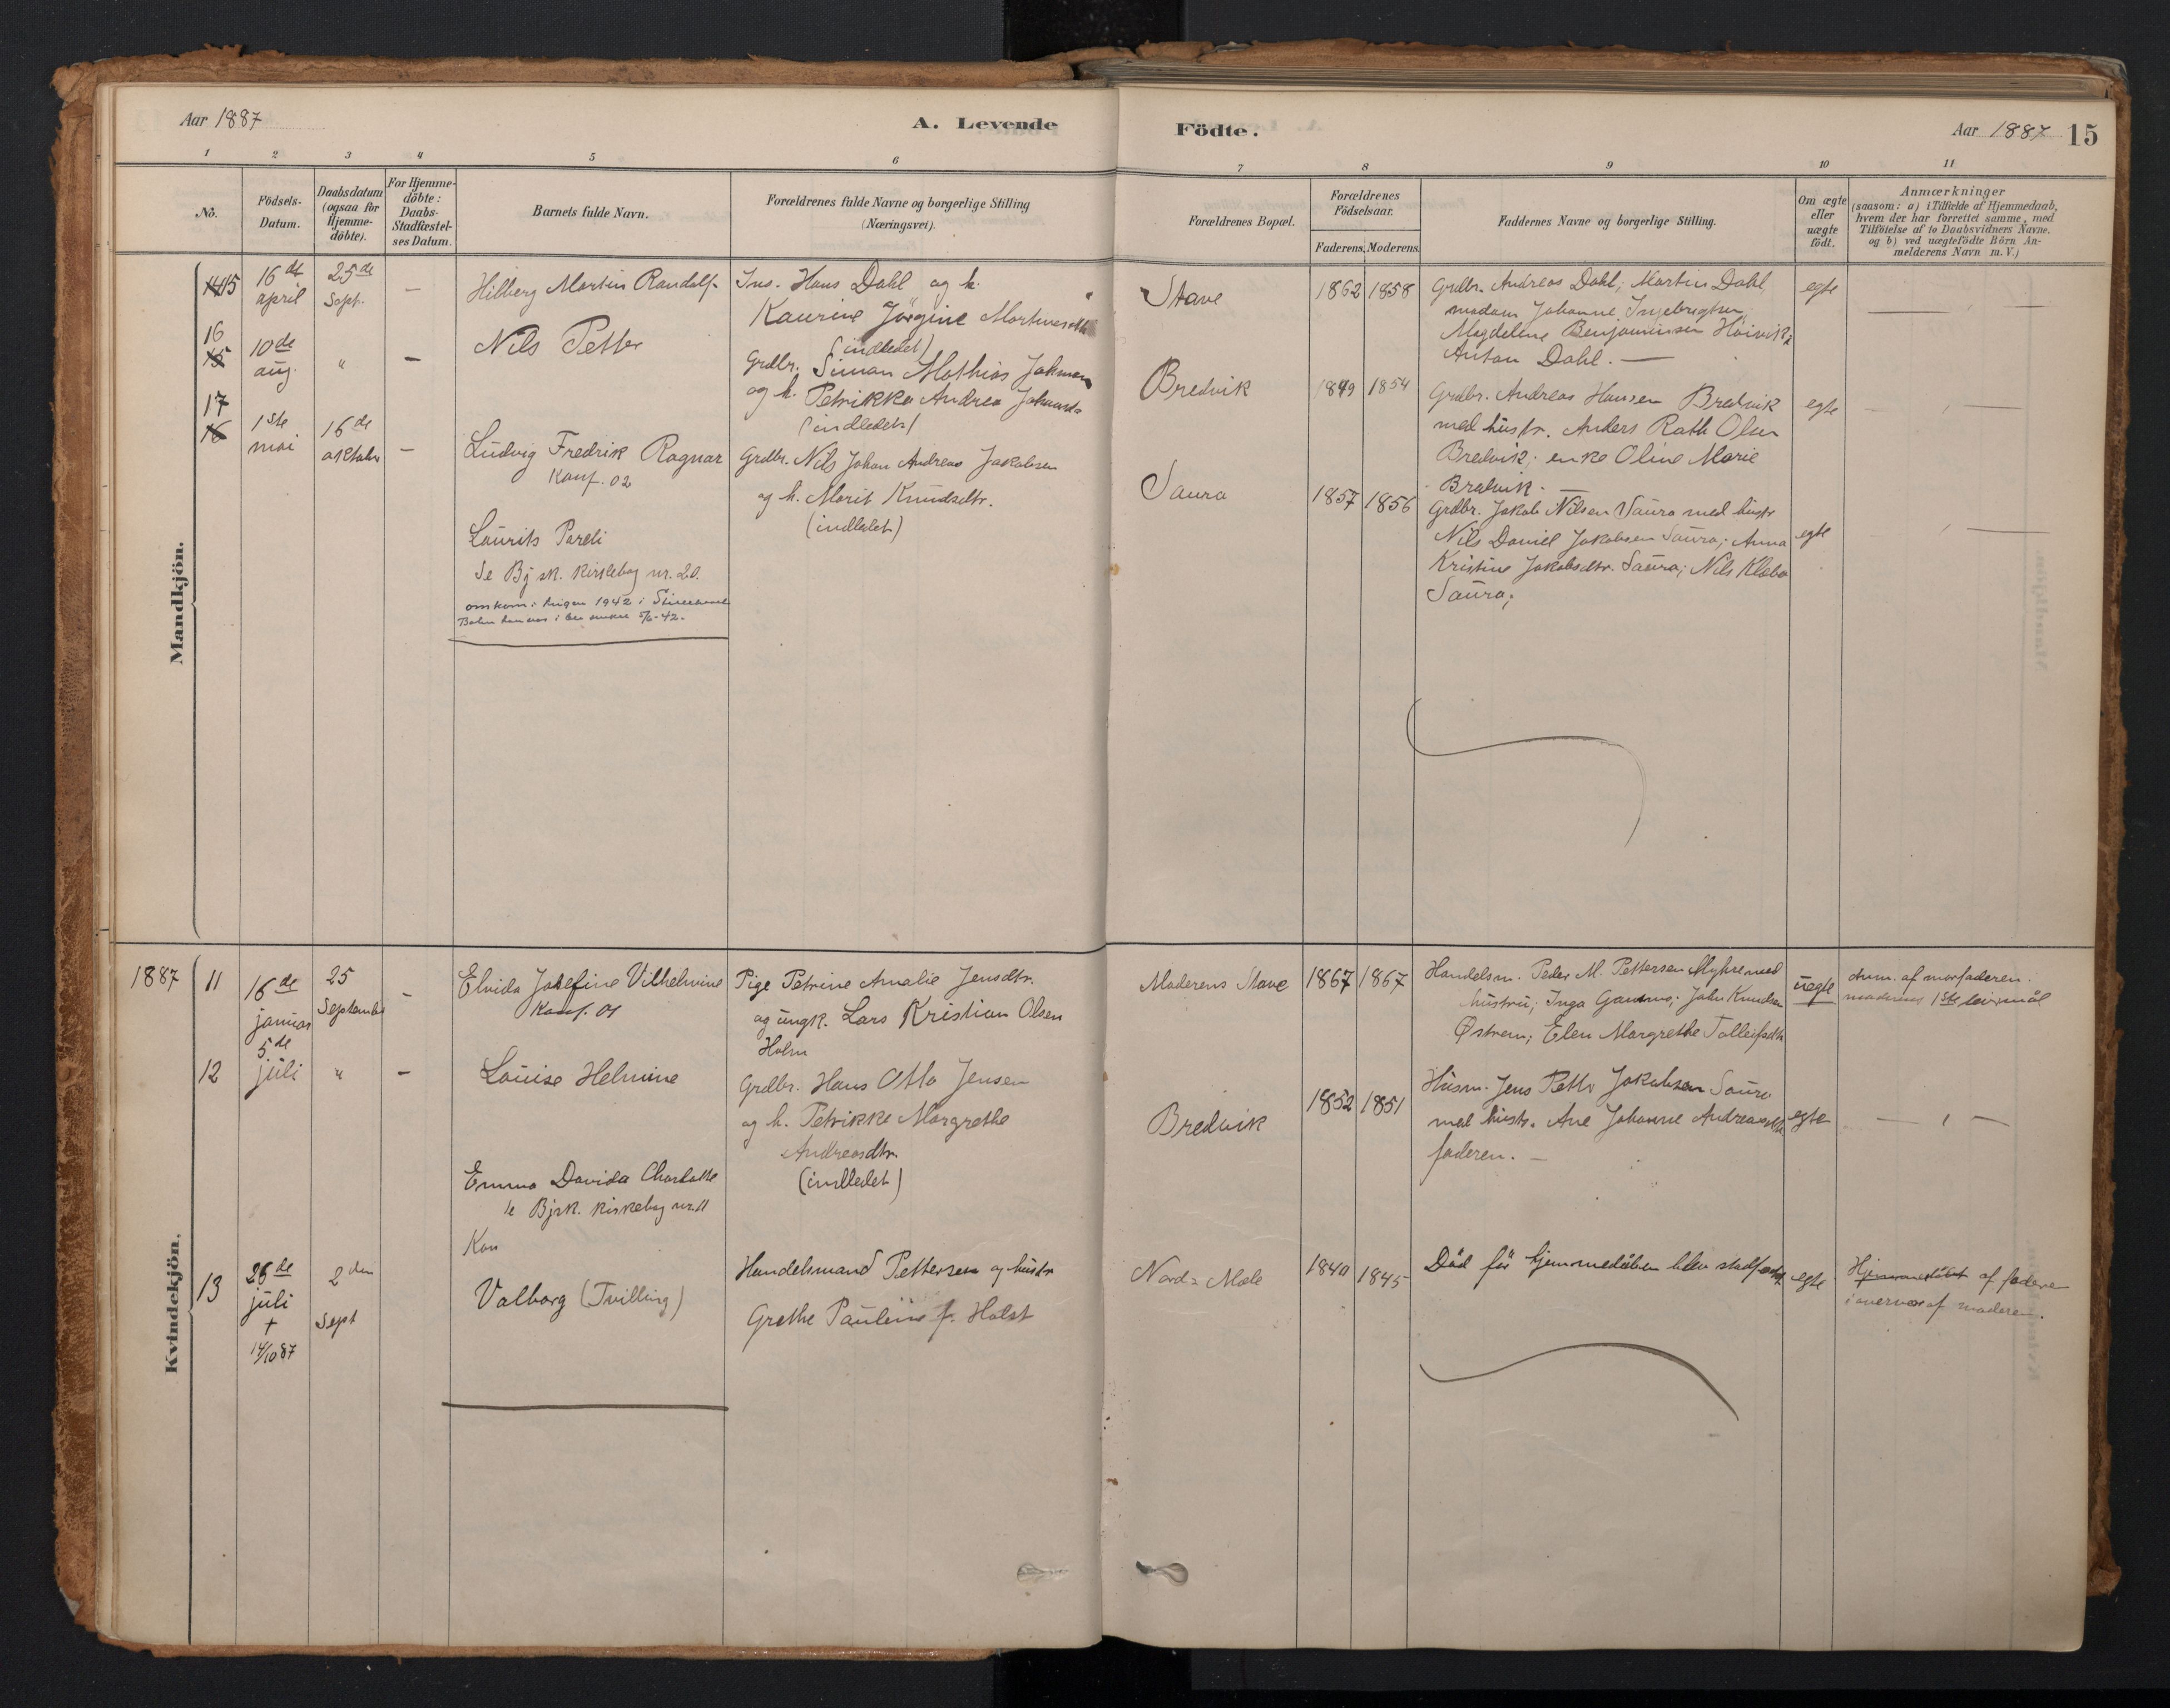 Aar 1887
A. Levende
Födte.
Aar 1887
15
1
2
3
4
5
6
7
8
9
10
11
No.
Födsels-
Datum.
Daabsdatum
(ogsaa for
Hjemme-
döbte).
For Hjemme-
döbte:
Daabs-
Stadfæstel-
ses Datum.
Barnets fulde Navn.
Forældrenes fulde Navne og borgerlige Stilling
(Næringsvei).
Forældrenes Bopæl.
Forældrenes
Födselsaar.
Faderens.
Moderens.
Faddernes Navne og borgerlige Stilling.
Om ægte
eller
uægte
födt.
Anmærkninger
(saasom: a) i Tilfælde af Hjemmedaab,
hvem der har forrettet samme, med
Tilföielse af to Daabsvidners Navne.
og b) ved uægtefödte Börn An-
melderens Navn m. V.)
Mandkjön.
14 15
16de
april
25de
Sept.
—
Hilberg Martin Randolf
Ins. Hans Dahl og h.
Kaurine Jörgine
(indledet)
Stave
1862
1858
Grdbr. Andreas Dahl; Martin Dahl
madam Johanne Ingebrigtsen
Magdeline Benjaminsen
Anton Dahl. —
egte
16
15
10de
aug.
"
—
Nils Petter
Grdbr. Simon Mathias
og h. Petrikke Andrea
(indledet)
Bredvik
1849
1854
Grdbr. Andreas Hansen Bredvik
med hustr. Anders Rath Olsen
Bredvik; enke Oline Marie
Bredvik. —
egte
17
16
1ste
mai
16de
oktober
—
Ludvig Fredrik Ragnar
Konf. 02
Grdbr. Nils Johan Andreas Jakobsen
og h. Marit Knudsdtr.
(indledet)
Saura
1857
1856
Grdbr. Jakob Nilsen Saura med hustr
Nils Daniel Jakobsen Saura; Anna
Kristine Jakobsdtr. Saura; Nils Klæbo
Saura;
egte
Laurits Pareli
Se Bj sk. kirkebog nr. 20.
omkom i krigen 1942 i
Kvindekjön.
1887
11
16de
januar
25
September
—
Elvida Josefine Vilhelmine
Konf. 01
Pige Petrine Amalie Jensdtr.
og ungk. Lars Kristian Olsen
Holm
Moderens Stave
1867
1867
Handelsm. Peder M. Pettersen Myhre med
hustru; Inga John Knudsen
Østrem; Elen Margrethe
uegte
Anm. af morfaderen.
moderens 1ste leiermål
12
5de
juli
"
—
Louise Helmine
Grdbr. Hans Otto Jensen
og h. Petrikke Margrethe
Andreasdtr.
(indledet)
Bredvik
1852
1851
Husm. Jens Petter Jakobsen Saura
med hustr. Ane Johanne Andreasdtr
faderen. —
egte
Emma Davida Charlotte
se Bjsk. kirkebog nr. 11
Kon
13
26de
juli
+
14/10 87
2den
Sept
Valborg (Tvilling)
Handelsmand Pettersen og hustr
Grethe Pauline f. Holst
Nord-Mele
1840
1845
Död för hjemmedåben blev stadfæstet
egte
Hjemmedöbt af faderen
i overvær af moderen.